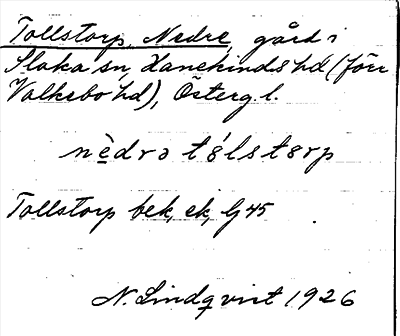 Tollstorp, Nedre, gård i
Slaka sn, Hanekinds hd (förr
Valkebo hd), Österg. l.
nèdrə tólstorp
Tollstorp bek, ek, Gj 45
N. Lindqvist 1926